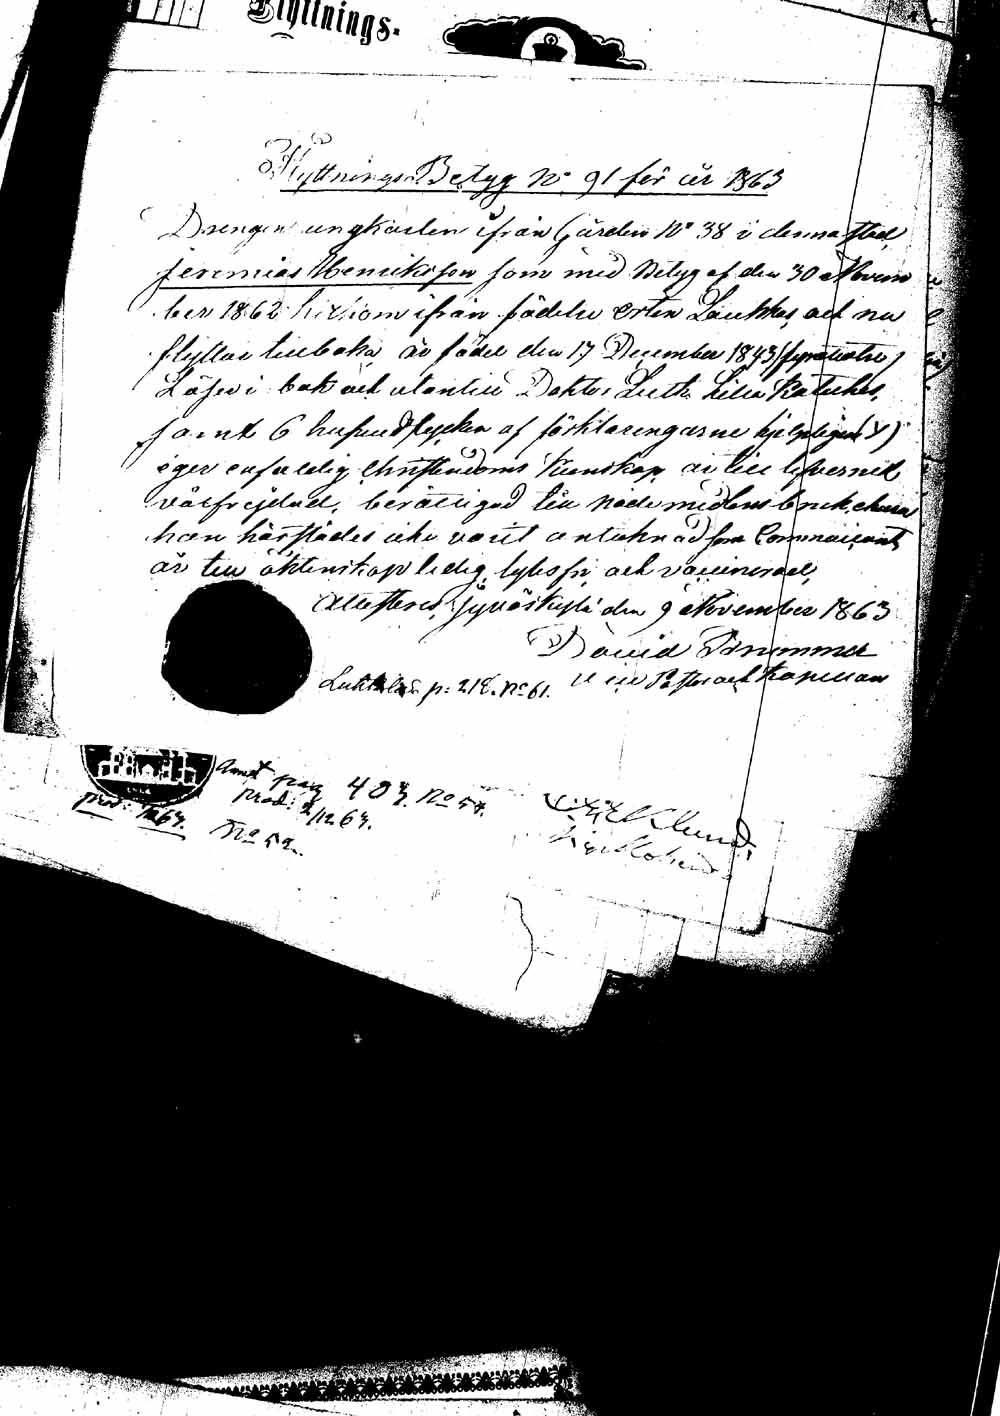 Flyttnings-
Flyttnings Betyg No 91 för år 1863
Drengen ungkarlen ifrån Gården No 38 i denna stad
Jeremias Henriksson som med Betyg af den 30 Novem
ber 1862 hitkom ifrån födelse orten Laukkas och nu
flyttar tillbaka är född den 17 December 1843
Läser i bok och utantill Doktor Luth. Lilla Kateches,
samt 6 hufvudstycken af förklaringarne hjelpligen
eger enfaldig Christendoms kunskap, är till lefvernet
välfrejdad, berättigad till nademedlens bruk, ehuru
han härstädes icke varit antecknad som Communicant
är till äktenskap ledig, lytesfri och vaccinerad,
Attesteras, Jyväskylä den 9 November 1863
David Brummer
Past och Kapellan
p: 218. No 61.
Annot pag 403. No 57.
prod: 12 63.
No 52.